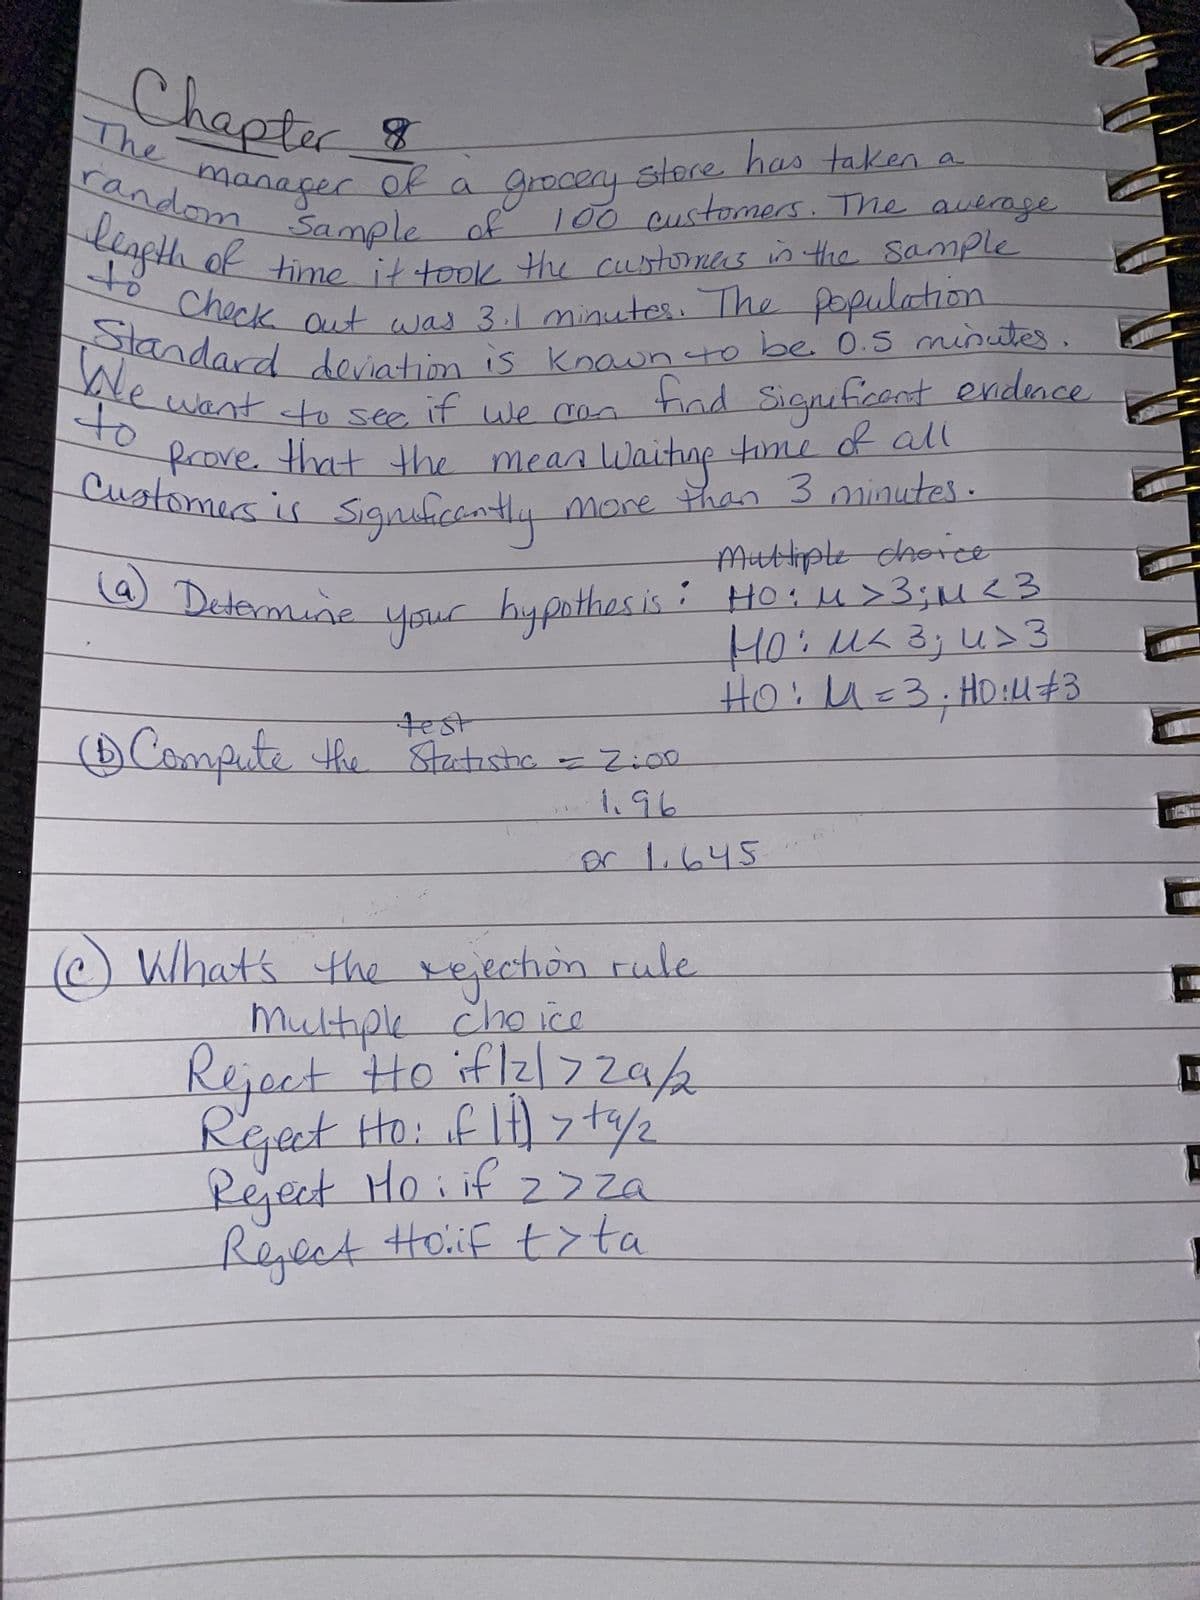 Chapter 8
The manager of a grocery store has taken a
random Sample of 100 customers. The average
length of time it took the customers in the sample
to Check out was 3.1 minutes. The population
Standard deviation is known to be 0.5 minutes.
We want to see if we can find Significant evidence
to prove that the mean Waiting time of all
Customers is Significantly more than 3 minutes.
Multiple choice
(a) Determine your hypothesis: HO: M >3; M < 3
HO: M< 3; u> 3
HO: M = 3; HO: M ≠ 3
test
(b) Compute the Statistic = 2.00
1.96
or 1.645
(c) What's the rejection rule
Multiple choice
Reject Ho if |z| > za/2
Reject Ho: if |t| > ta/2
Reject Ho: if z > za
Reject Ho: if t > ta